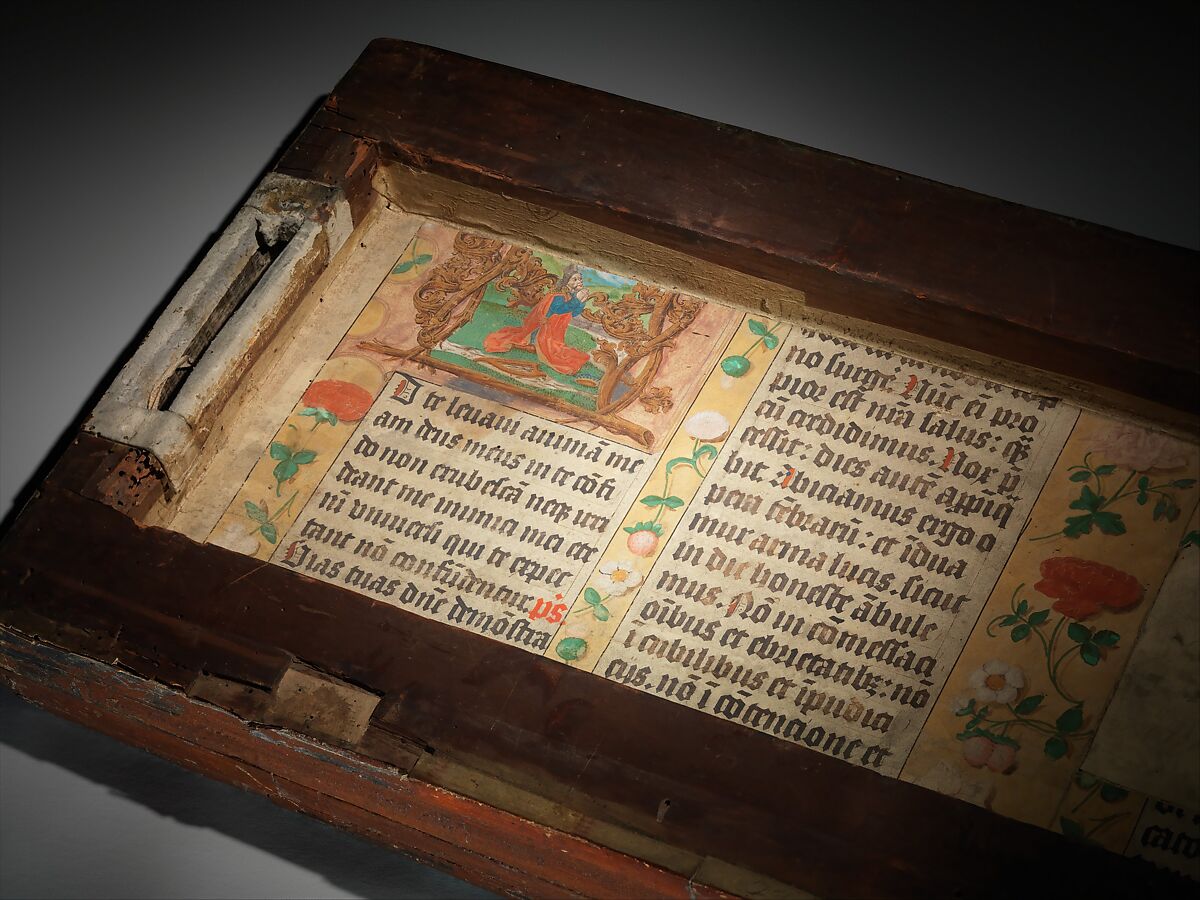 D te leuaui animã me
am deus meus in te cõfi
do non erubescã neqz irri
deant me inimici mei ete
nĩ vniuersi qui te expec
tant nõ confũdentur. ps.
Vias tuas dñe demõstra
no surge. Nũc eĩ pro
pior est nr̃a salus: qz
cũ credidimus. Nox p̃
cessit: dies autẽ appĩq
bit. Abiciamus ergo o
pera tẽbrarũ. et ĩdua
mur arma lucis. sicut
in die honeste ãbule
mus. Nõ in cõmessaci
õibus et ebrietatibz: nõ
ĩ cubilibus et ĩpudici
cijs. nõ ĩ cõtencione et